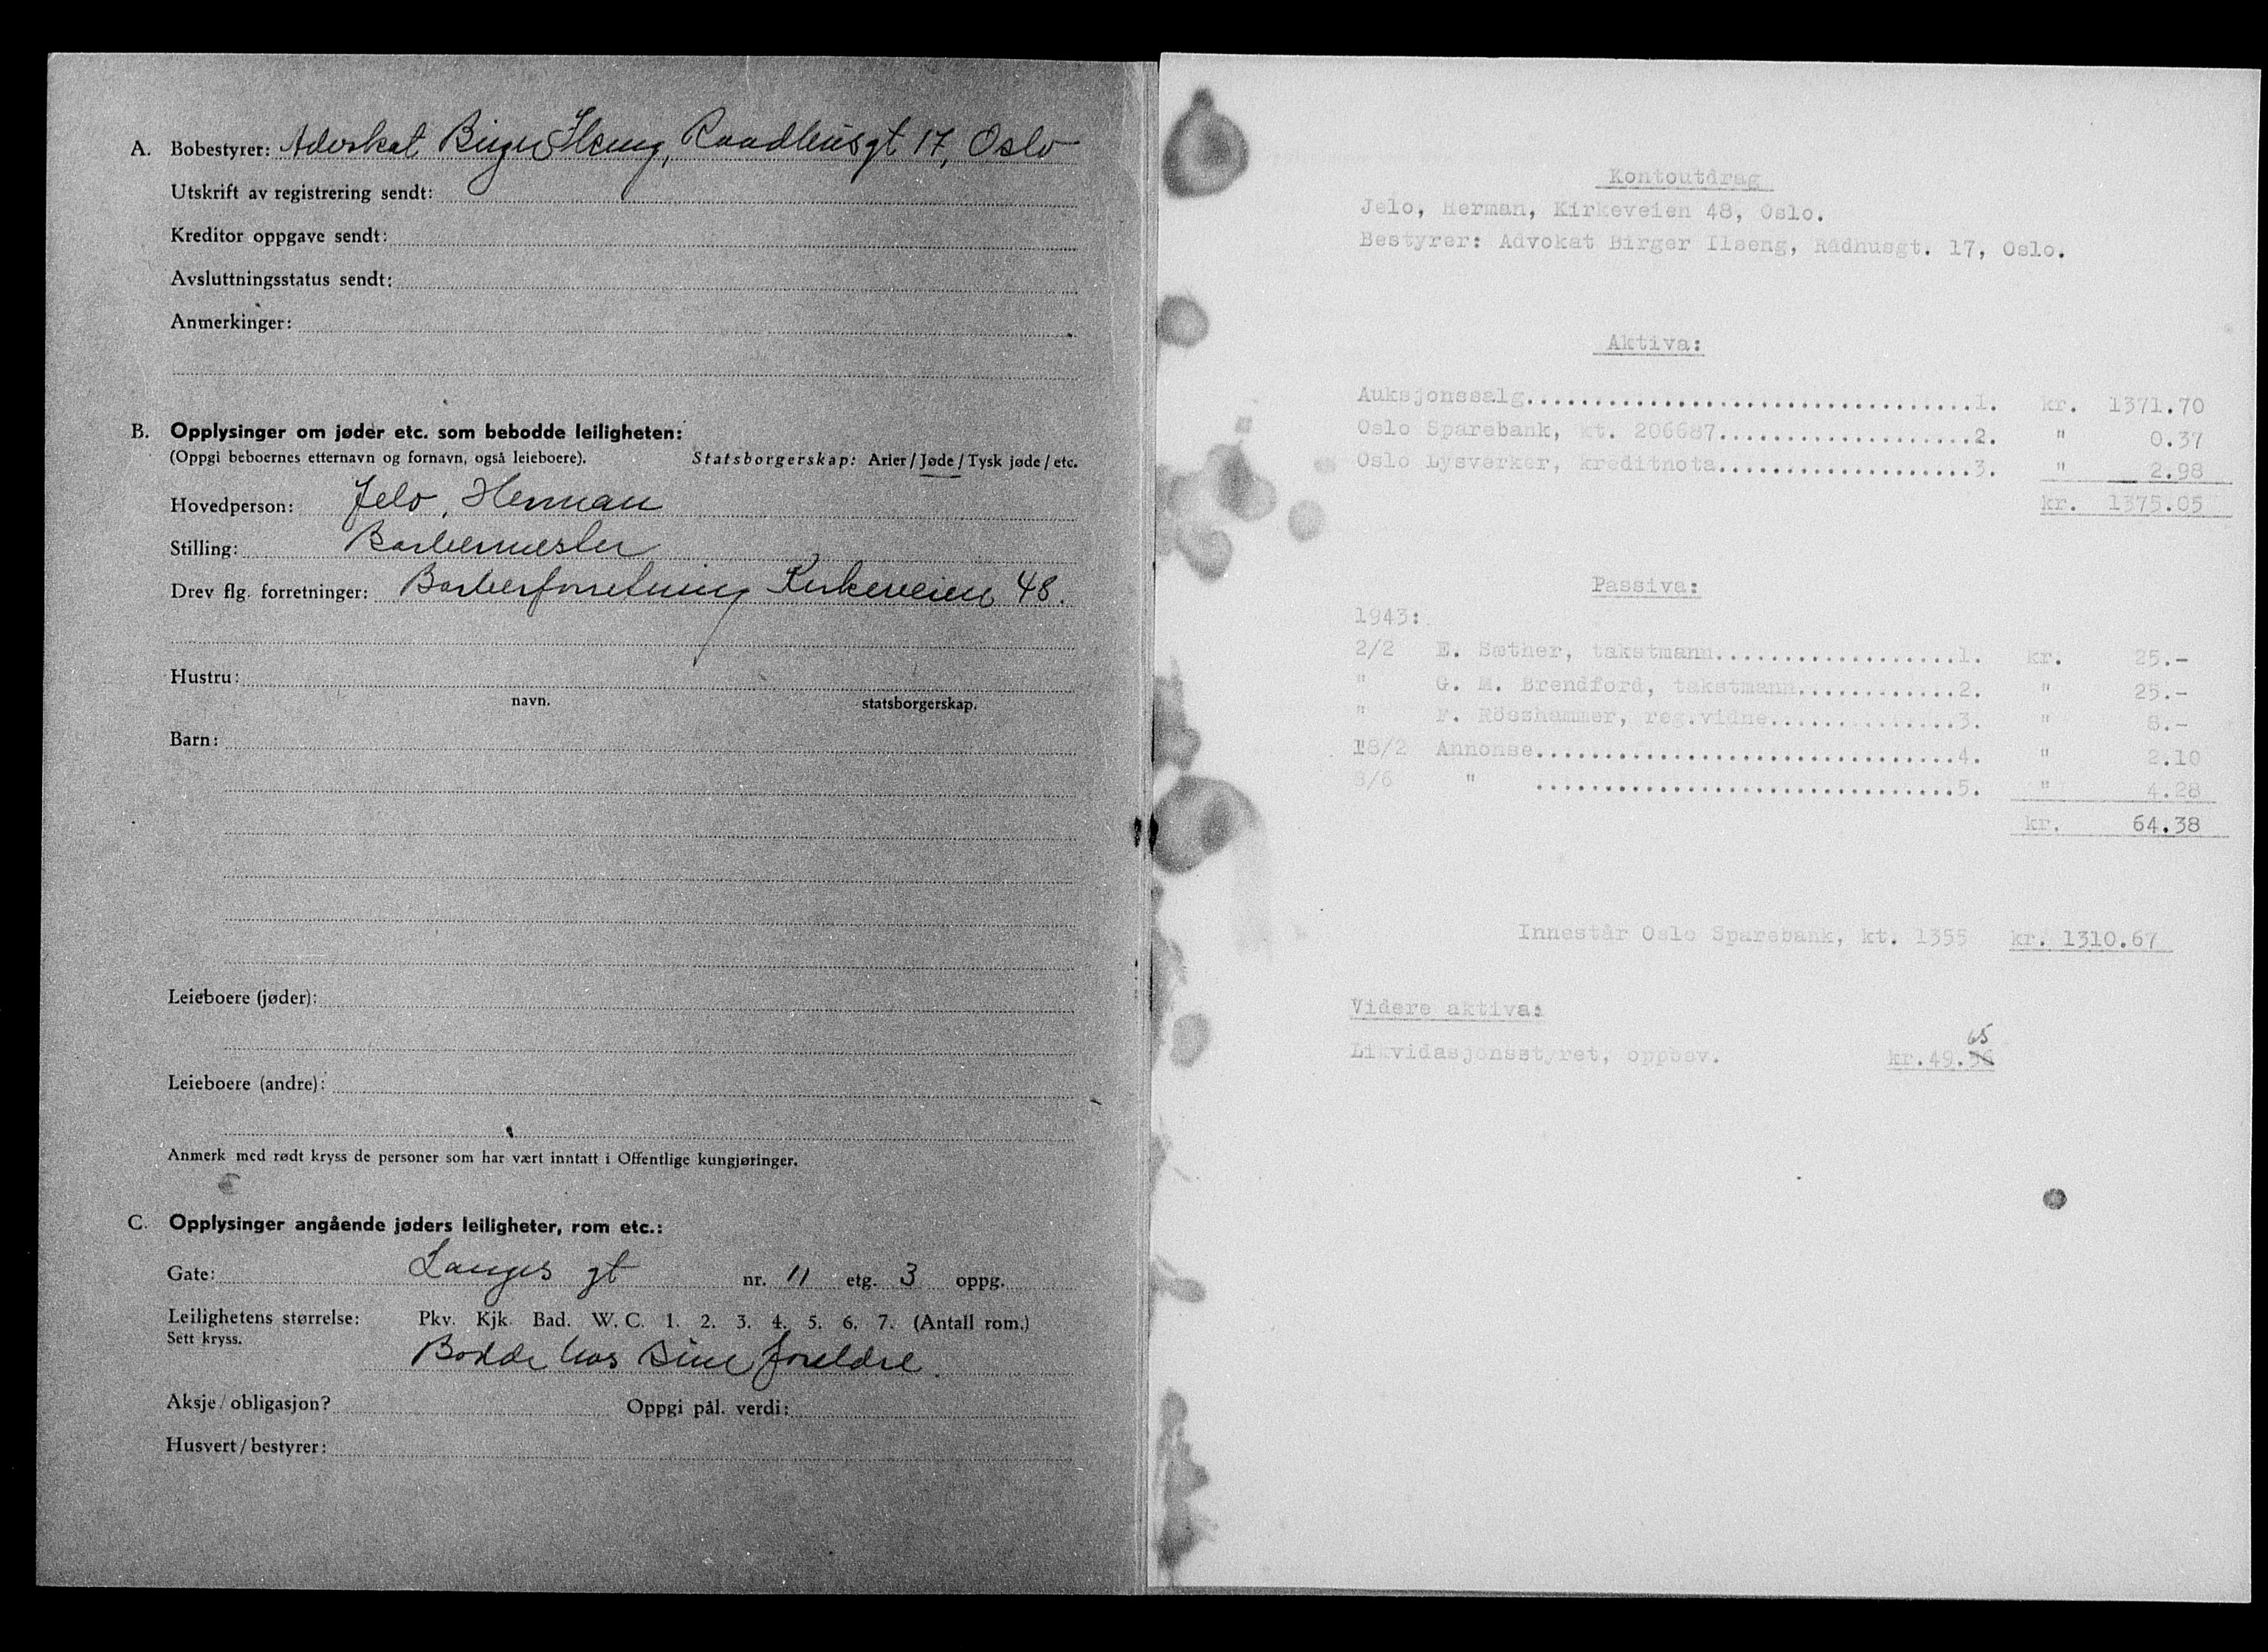 A. Bobestyrer: Advokat Birger Ilseng, Raadhusgt 17, Oslo
Utskrift av registrering sendt:
Kreditor oppgave sendt:
Avsluttningsstatus sendt:
Anmerkinger:
B. Opplysinger om jøder etc. som bebodde leiligheten:
(Oppgi beboernes etternavn og fornavn, også leieboere). Statsborgerskap: Arier / Jøde / Tysk jøde / etc.
Hovedperson: Jelo, Herman
Stilling: Barbermester
Drev flg. forretninger: Barberforretning Kirkeveien 48.
Hustru:
navn. statsborgerskap.
Barn:
Leieboere (jøder):
Leieboere (andre):
Anmerk med rødt kryss de personer som har vært inntatt i Offentlige kungjøringer.
C. Opplysinger angående jøders leiligheter, rom etc.:
Gate: Langes gt nr. 11 etg. 3 oppg.
Leilighetens størrelse: Pkv. Kjk. Bad. W. C. 1. 2. 3. 4. 5. 6. 7. (Antall rom.)
Sett kryss.
Bodde hos sine foreldre.
Aksje / obligasjon? Oppgi pål. verdi:
Husvert / bestyrer:
Kontoutdrag
Jelo, Herman, Kirkeveien 48, Oslo.
Bestyrer: Advokat Birger Ilseng, Rådhusgt. 17, Oslo.
Aktiva:
Auksjonssalg.................................1. kr. 1371.70
Oslo Sparebank, kt. 206687...................2. " 0.37
Oslo Lysverker, kreditnota...................3. " 2.98
kr. 1375.05
Passiva:
1943:
2/2 E. Sæther, takstmann..................1. kr. 25.-
" G. M. Brendford, takstmann............2. " 25.-
" F. Röeshammer, reg.vidne..............3. " 8.-
18/2 Annonse...............................4. " 2.10
8/6 " ...............................5. " 4.28
kr. 64.38
Innestår Oslo Sparebank, kt. 1355 kr. 1310.67
Videre aktiva:
65
Likvidasjonsstyret, oppbev. kr.49.56